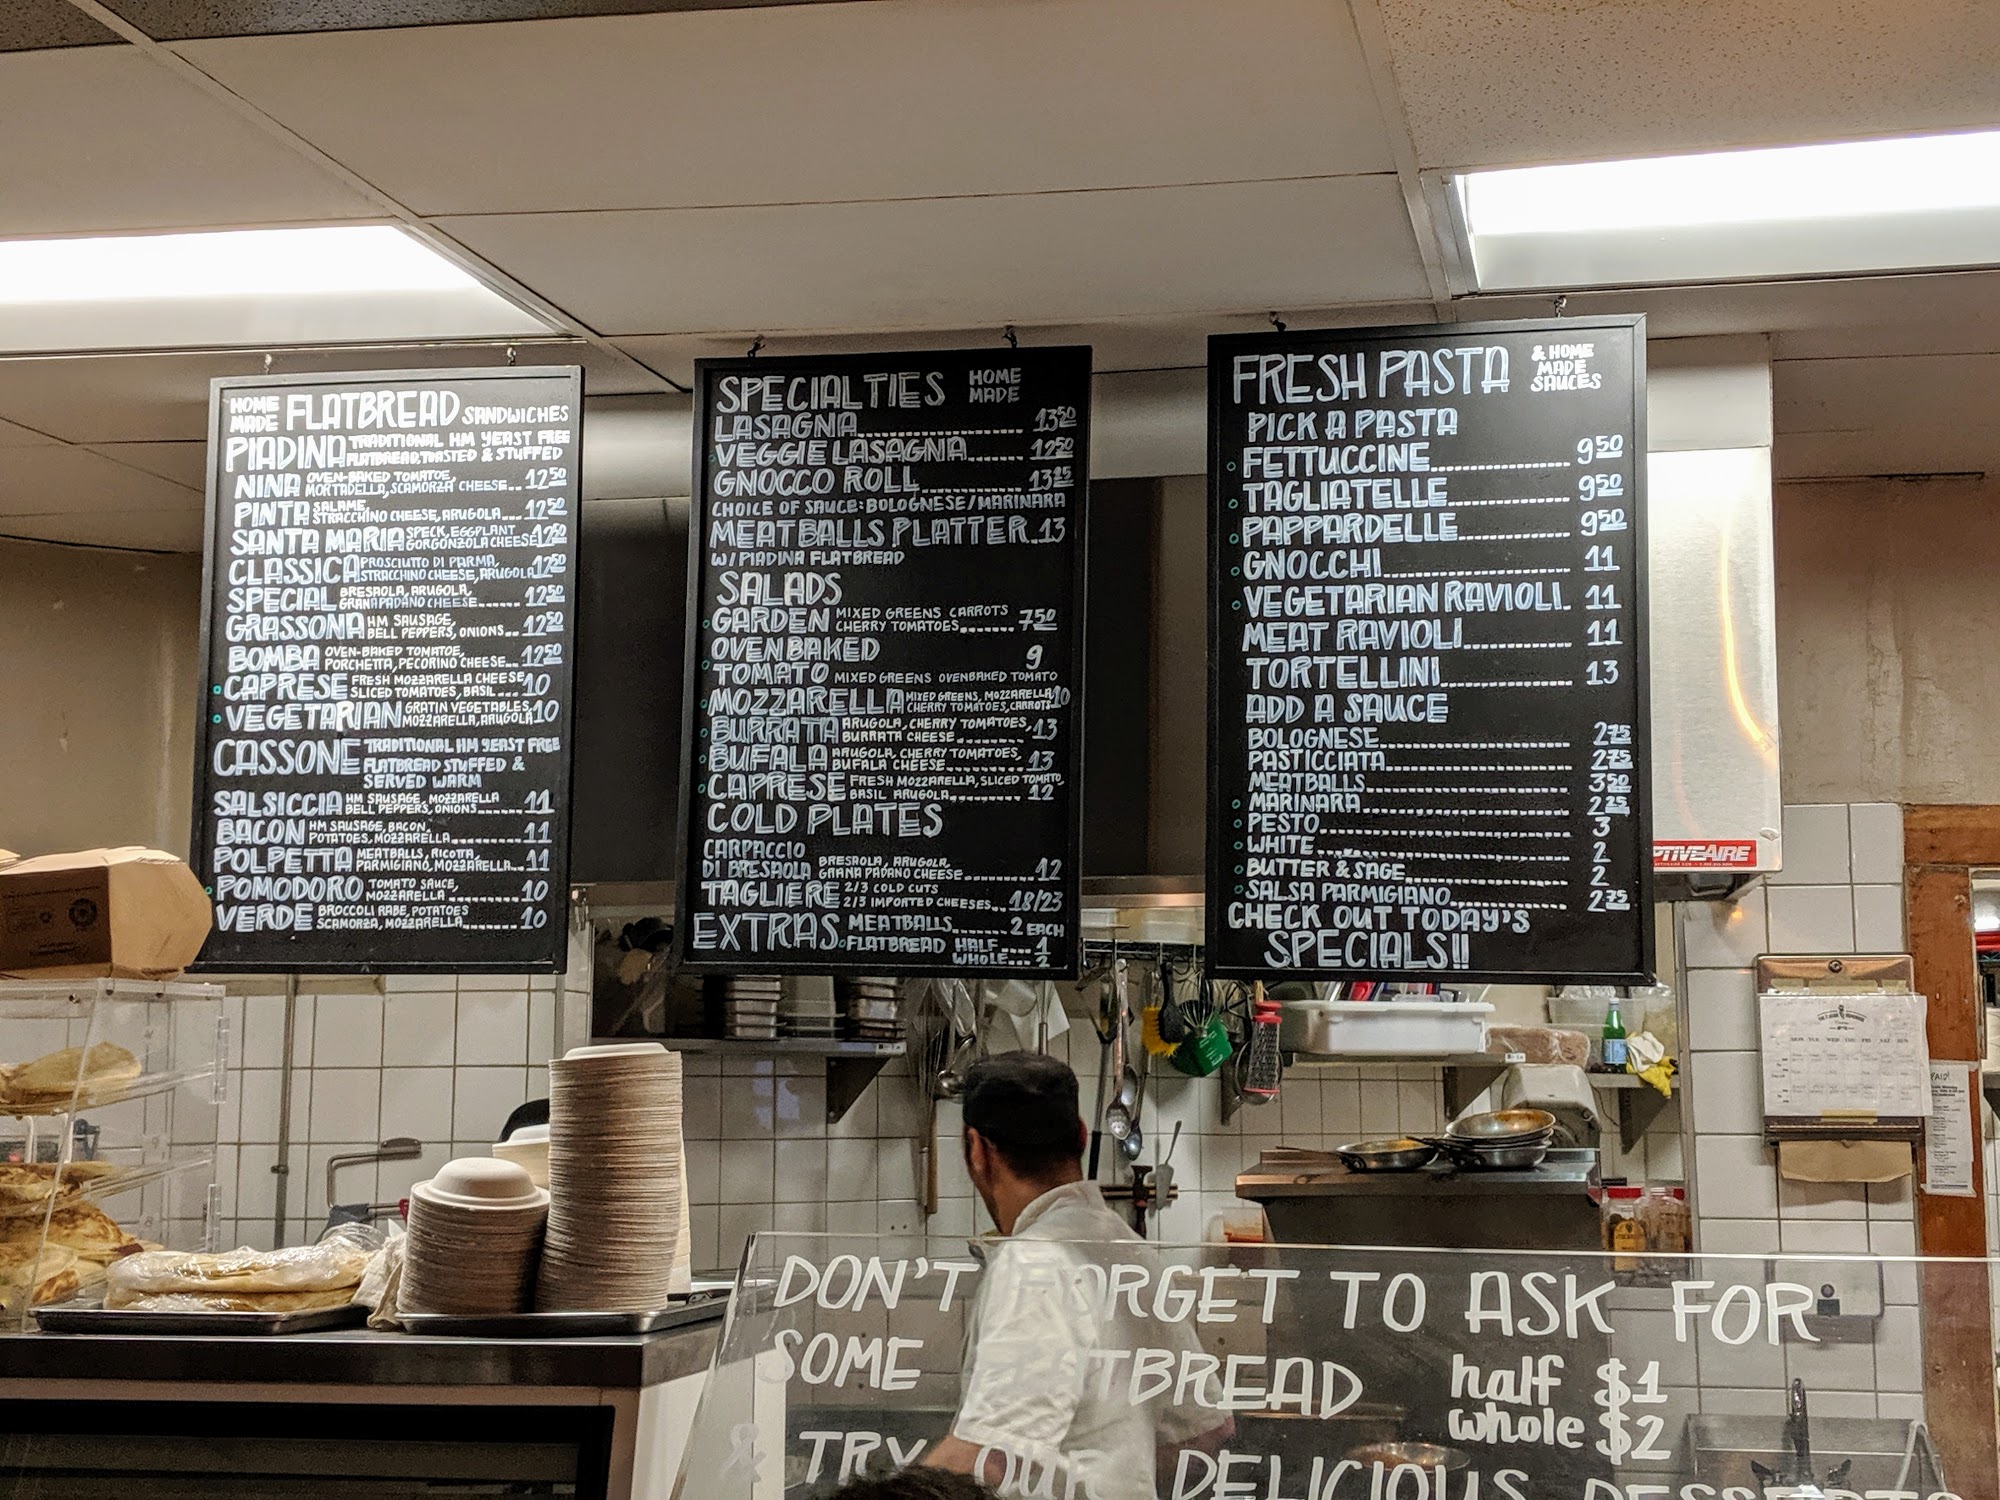 HOME MADE FLATBREAD SANDWICHES
PIADINA TRADITIONAL HM YEAST FREE
FLATBREAD, TOASTED & STUFFED
NINA OVEN-BAKED TOMATOE,
MORTADELLA, SCAMORZA CHEESE... 12.50
PINTA SALAME,
STRACCHINO CHEESE, ARUGOLA..... 12.50
SANTA MARIA SPECK, EGGPLANT
GORGONZOLA CHEESE 12.50
CLASSICA PROSCIUTTO DI PARMA,
STRACCHINO CHEESE, ARUGOLA 12.50
SPECIAL BRESAOLA, ARUGOLA,
GRANA PADANO CHEESE...... 12.50
GRASSONA HM SAUSAGE,
BELL PEPPERS, ONIONS... 12.50
BOMBA OVEN-BAKED TOMATOE,
PORCHETTA, PECORINO CHEESE... 12.50
CAPRESE FRESH MOZZARELLA CHEESE
SLICED TOMATOES, BASIL.... 10
VEGETARIAN GRATIN VEGETABLES,
MOZZARELLA, ARUGOLA 10
CASSONE TRADITIONAL HM YEAST FREE
FLATBREAD STUFFED &
SERVED WARM
SALSICCIA HM SAUSAGE, MOZZARELLA
BELL PEPPERS, ONIONS...... 11
BACON HM SAUSAGE, BACON,
POTATOES, MOZZARELLA......... 11
POLPETTA MEATBALLS, RICOTTA,
PARMIGIANO, MOZZARELLA... 11
POMODORO TOMATO SAUCE,
MOZZARELLA.......... 10
VERDE BROCCOLI RABE, POTATOES
SCAMORZA, MOZZARELLA........ 10
SPECIALTIES HOME MADE
LASAGNA.................. 13.50
VEGGIE LASAGNA....... 12.50
GNOCCO ROLL........... 13.25
CHOICE OF SAUCE: BOLOGNESE/MARINARA
MEATBALLS PLATTER.. 13
W/ PIADINA FLATBREAD
SALADS
GARDEN MIXED GREENS CARROTS
CHERRY TOMATOES....... 7.50
OVEN BAKED 9
TOMATO MIXED GREENS OVENBAKED TOMATO
MOZZARELLA MIXED GREENS, MOZZARELLA,
CHERRY TOMATOES, CARROTS 10
BURRATA ARUGOLA, CHERRY TOMATOES,
BURRATA CHEESE......... 13
BUFALA ARUGOLA, CHERRY TOMATOES,
BUFALA CHEESE........... 13
CAPRESE FRESH MOZZARELLA, SLICED TOMATO,
BASIL ARUGOLA......... 12
COLD PLATES
CARPACCIO
DI BRESAOLA BRESAOLA, ARUGOLA,
GRANA PADANO CHEESE....... 12
TAGLIERE 2/3 COLD CUTS
2/3 IMPORTED CHEESES... 18/23
EXTRAS MEATBALLS........ 2 EACH
FLATBREAD HALF.... 1
WHOLE.... 2
FRESH PASTA & HOME MADE SAUCES
PICK A PASTA
FETTUCCINE................ 9.50
TAGLIATELLE.............. 9.50
PAPPARDELLE............. 9.50
GNOCCHI.................... 11
VEGETARIAN RAVIOLI.. 11
MEAT RAVIOLI............ 11
TORTELLINI............... 13
ADD A SAUCE
BOLOGNESE...................... 2.75
PASTICCIATA.................... 2.75
MEATBALLS...................... 3.50
MARINARA....................... 2.25
PESTO............................ 3
WHITE............................ 2
BUTTER & SAGE................. 2
SALSA PARMIGIANO............. 2.75
CHECK OUT TODAY'S
SPECIALS!!
PTIVEAIRE
MON TUE WED THU FRI SAT SUN
DON'T FORGET TO ASK FOR
SOME TBREAD half $1
whole $2
& TRY OUR DELICIOUS DESSERTS